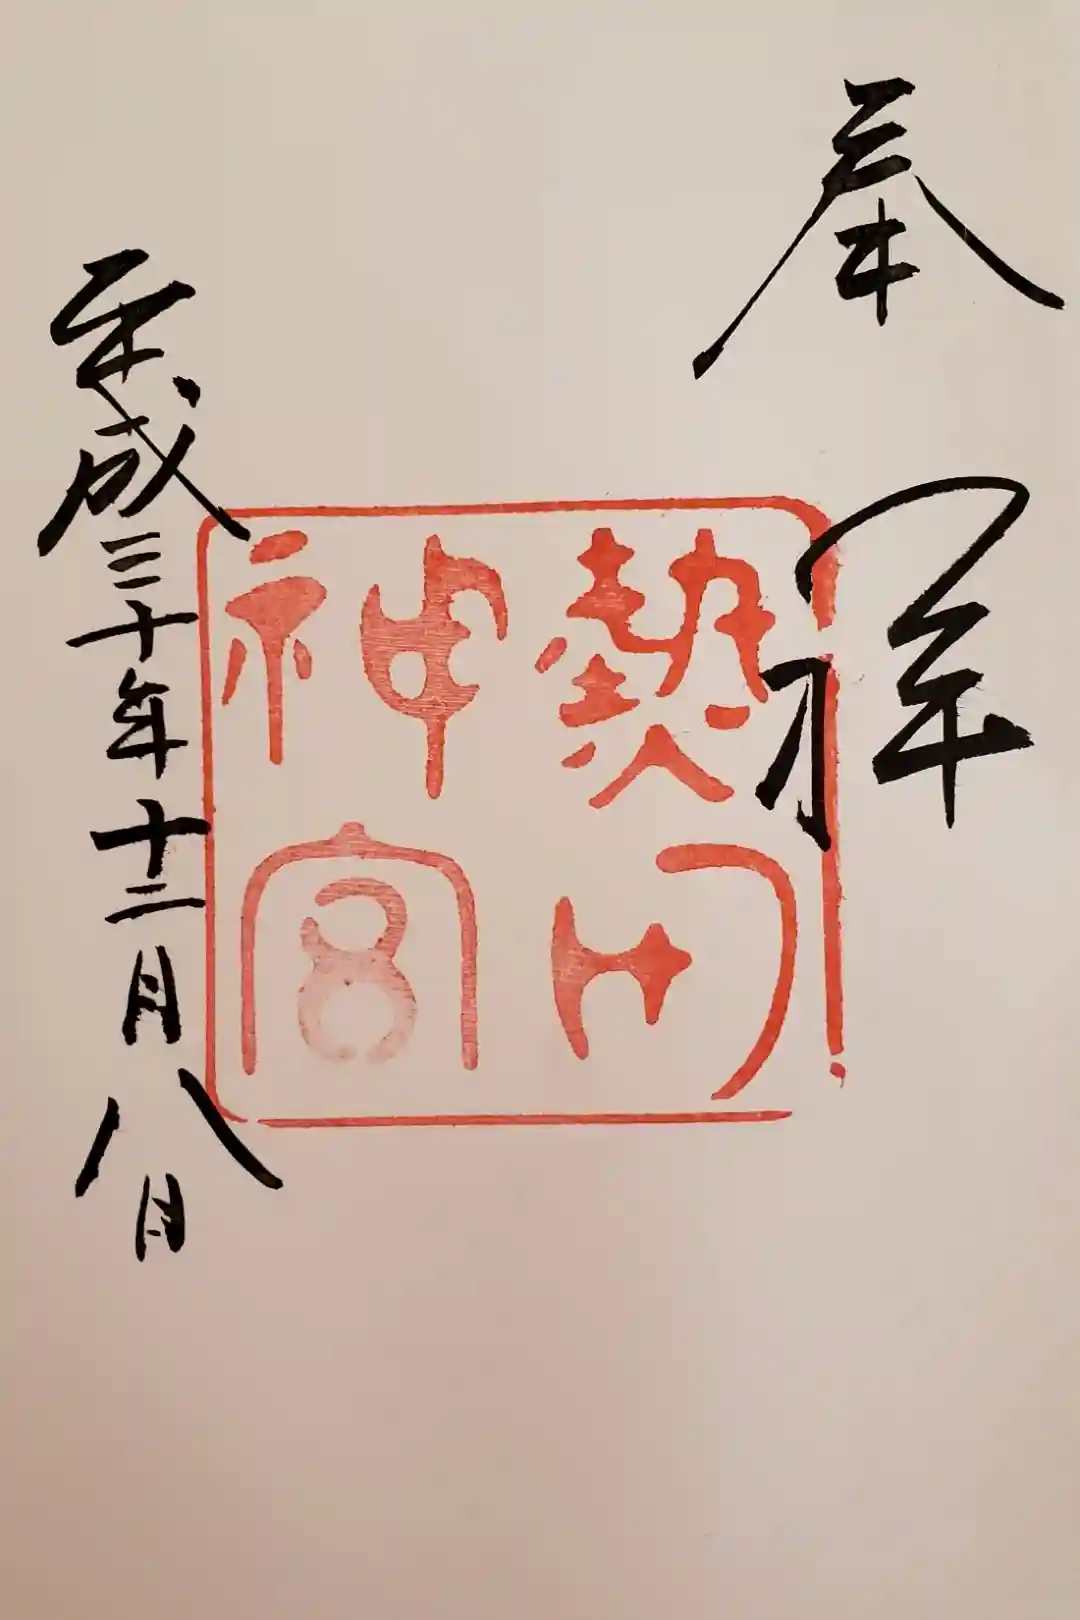 奉拝
熱田
神宮
平成三十年十二月八日